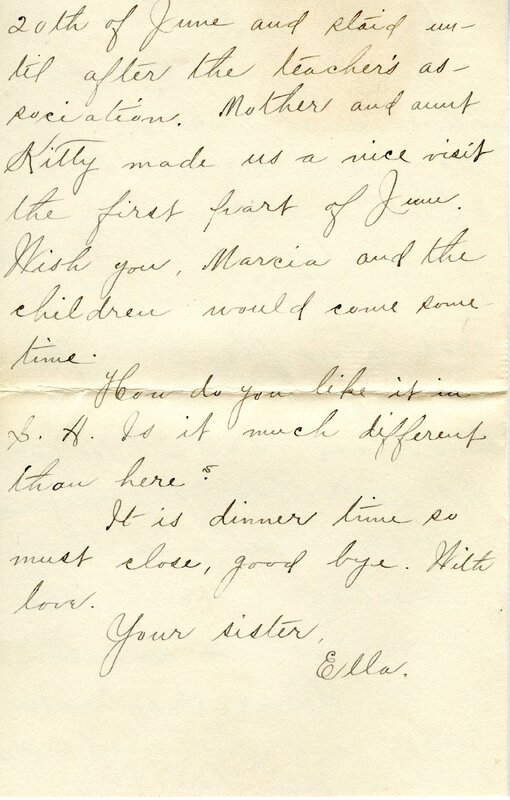 20th of June and staid un-
til after the teacher's as-
sociation. Mother and aunt
Kitty made us a nice visit
the first part of June.
Wish you, Marcia and the
children would come some-
time.
How do you like it in
S. H. Is it much different
than here?
It is dinner time so
must close, good bye. With
love.
Your sister,
Ella.